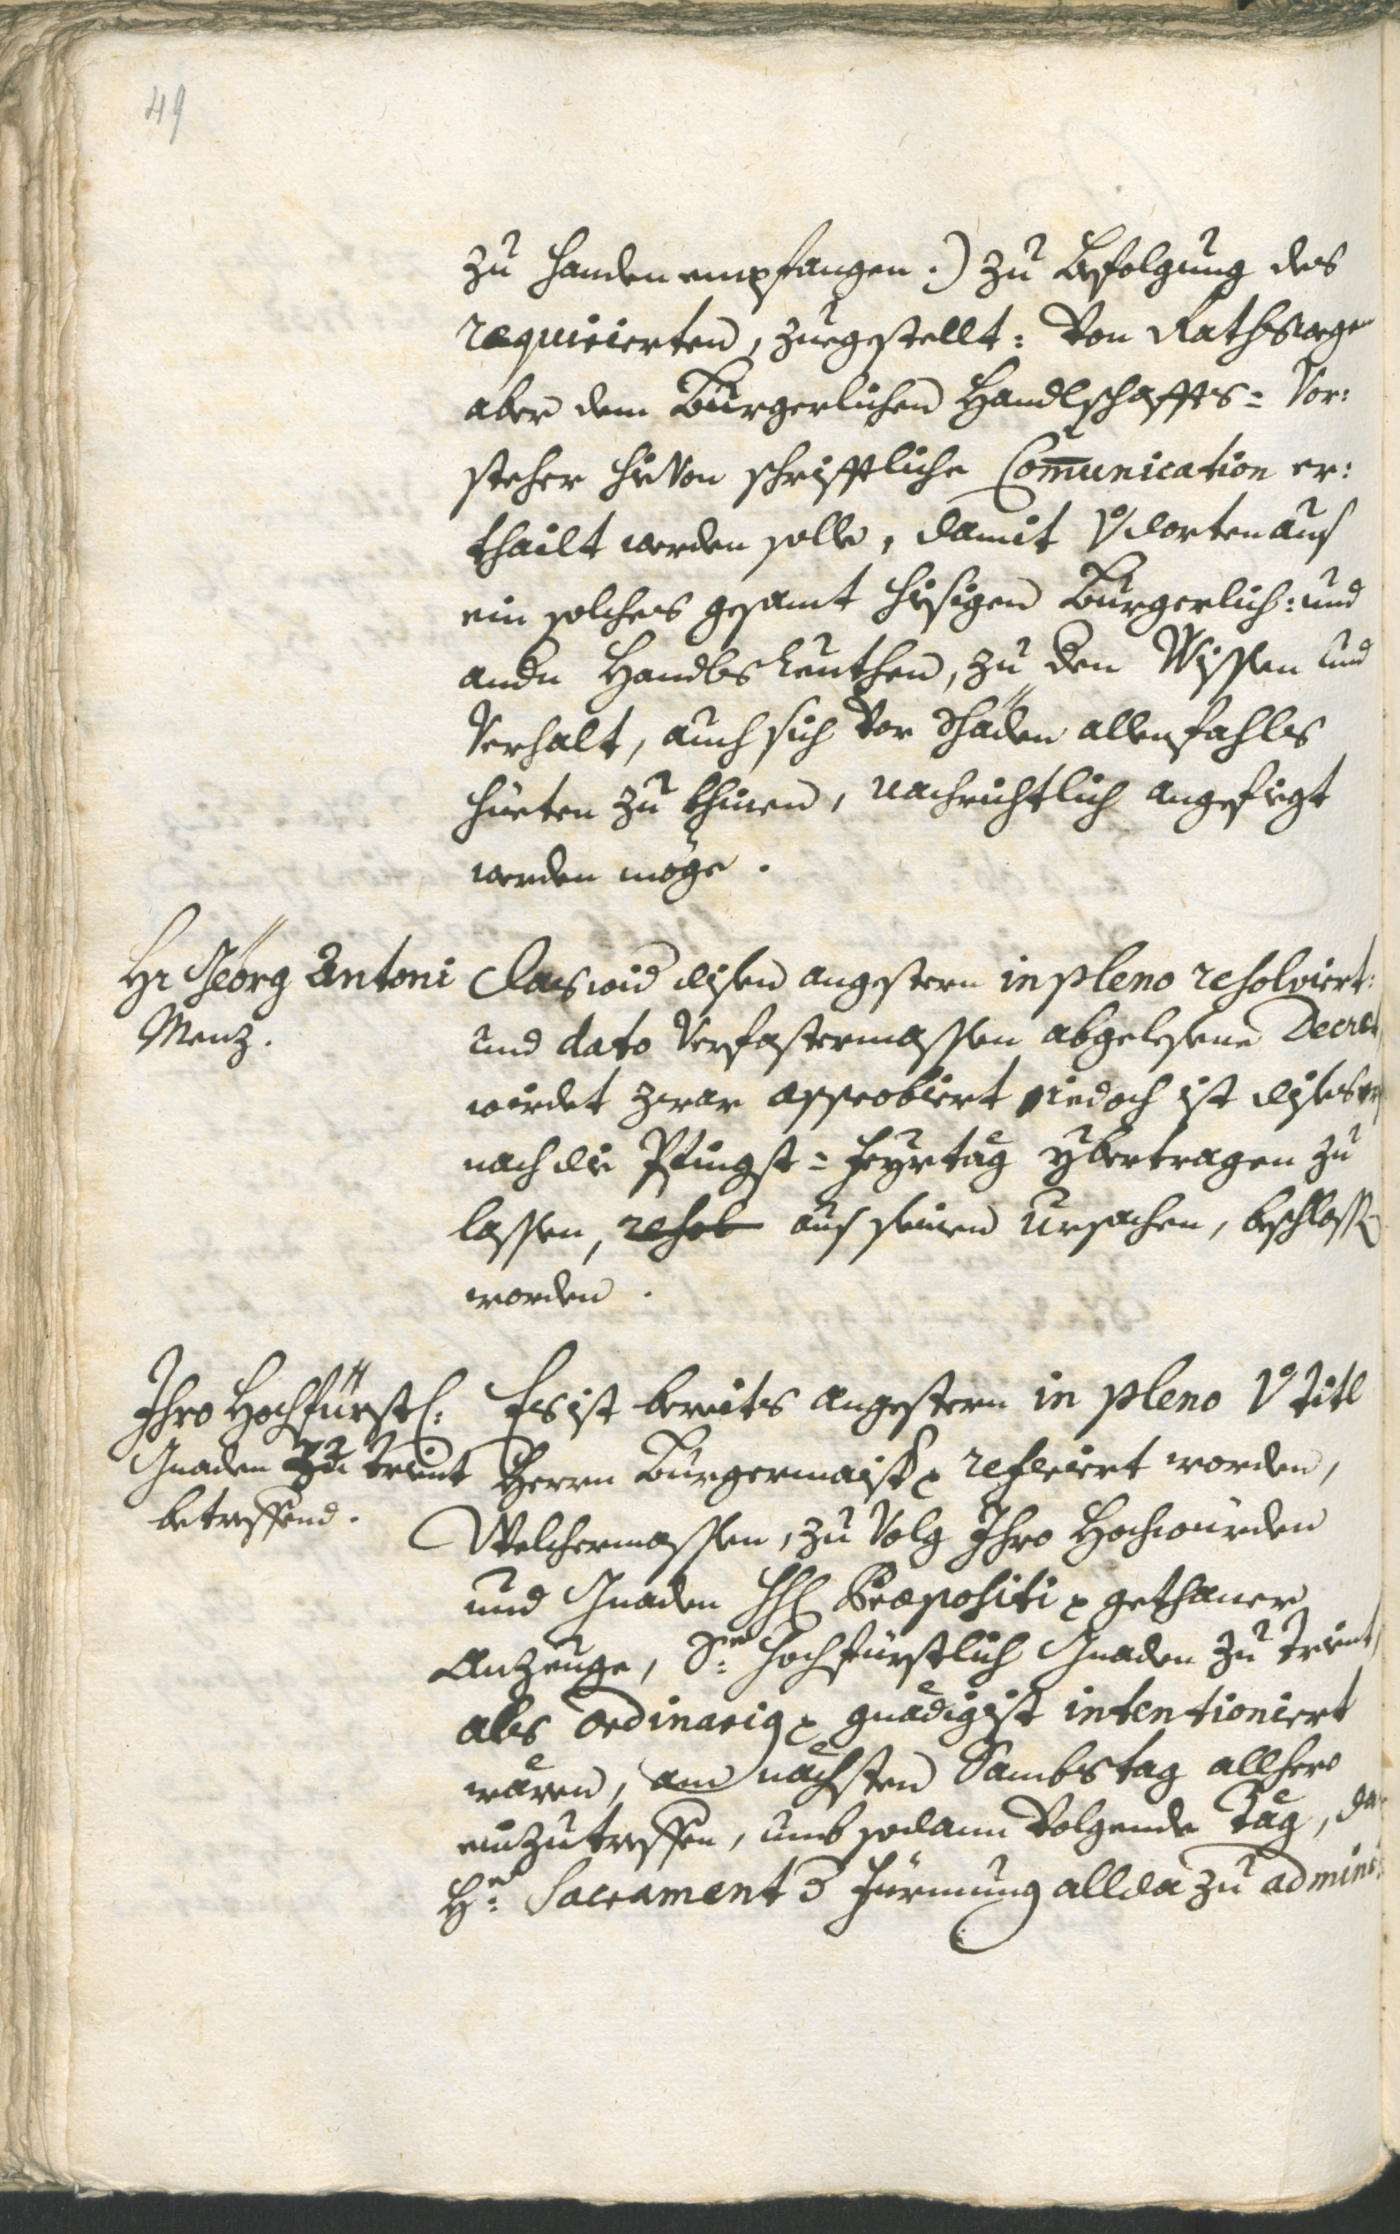 49
zu handen empfangen.) zu befolgung des
requirierten, zuegestellt: Von Rathswegen
aber dem Bürgerlichen Handlschaffts= Vor:
steher hievon schrifftliche Communication er:
thailt werden solle, damit v. dorten aus
ein solches gesamt hiesigen Bürgerlich: und
andn Handlsleuthen, zu den Wissen und
Verhalt, auch sich vor Schäden allenfahls
hüeten zu khinen, nachrichtlich angefiegt
werden möge.
Hr Georg Antoni
Menz.
Das wid disen angestern in pleno resolviert:
und dato verfastermassen abgelesene Decret
wirdet zwar approbiert iedoch ist dises
nach die Pfingst= feyrtäg ybertragen zu
lassen, resol aus seinen ursachen, beschlossen
worden.
Ihro Hochfürstl:
Gnaden zu Trient
betreffend.
Es ist bereits angestern in pleno v. Titl
Herrn Bürgermaister referiert worden,
Welchermassen, zu Volg Ihro Hochwürden
und Gnaden HH Præpositi gethaner
Anzeuge, Se: Hochfürstlich Gnaden zu Trient,
als Ordinarius gnädigist intentioniert
wären, am nächsten Sambstag allhero
einzutreffen, umb sodann Volgende Täg, das
H: Sacrament d Fürmung allda zu admini: